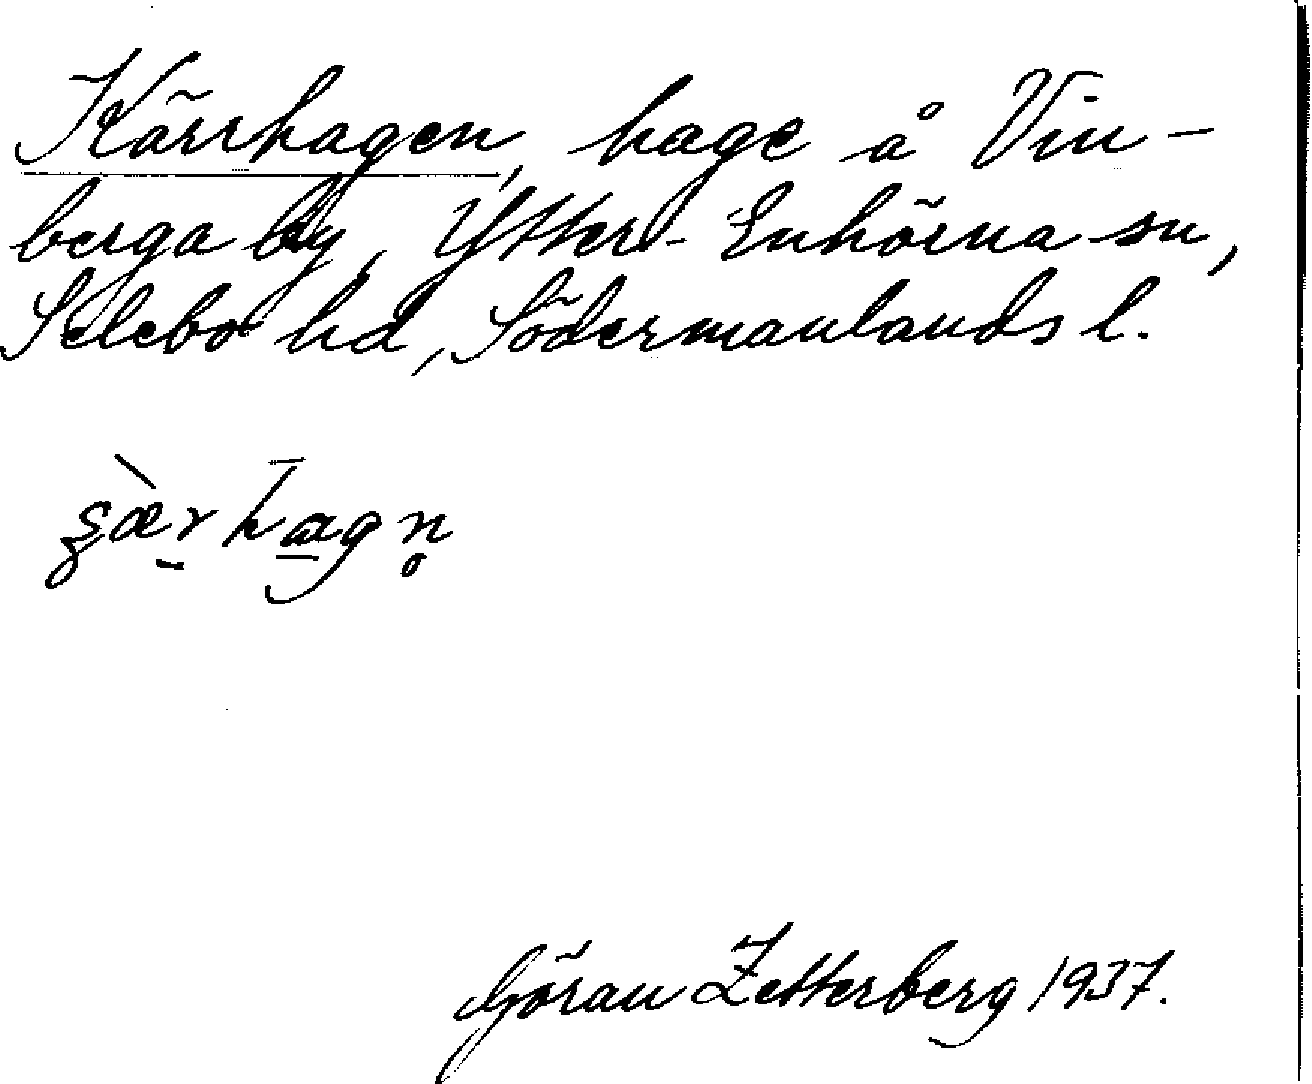 Kärrhagen, hage å Vin-
berga by, Ytter-Enhörna sn,
Selebo hd, Södermanlands l.
Göran Zetterberg 1937.